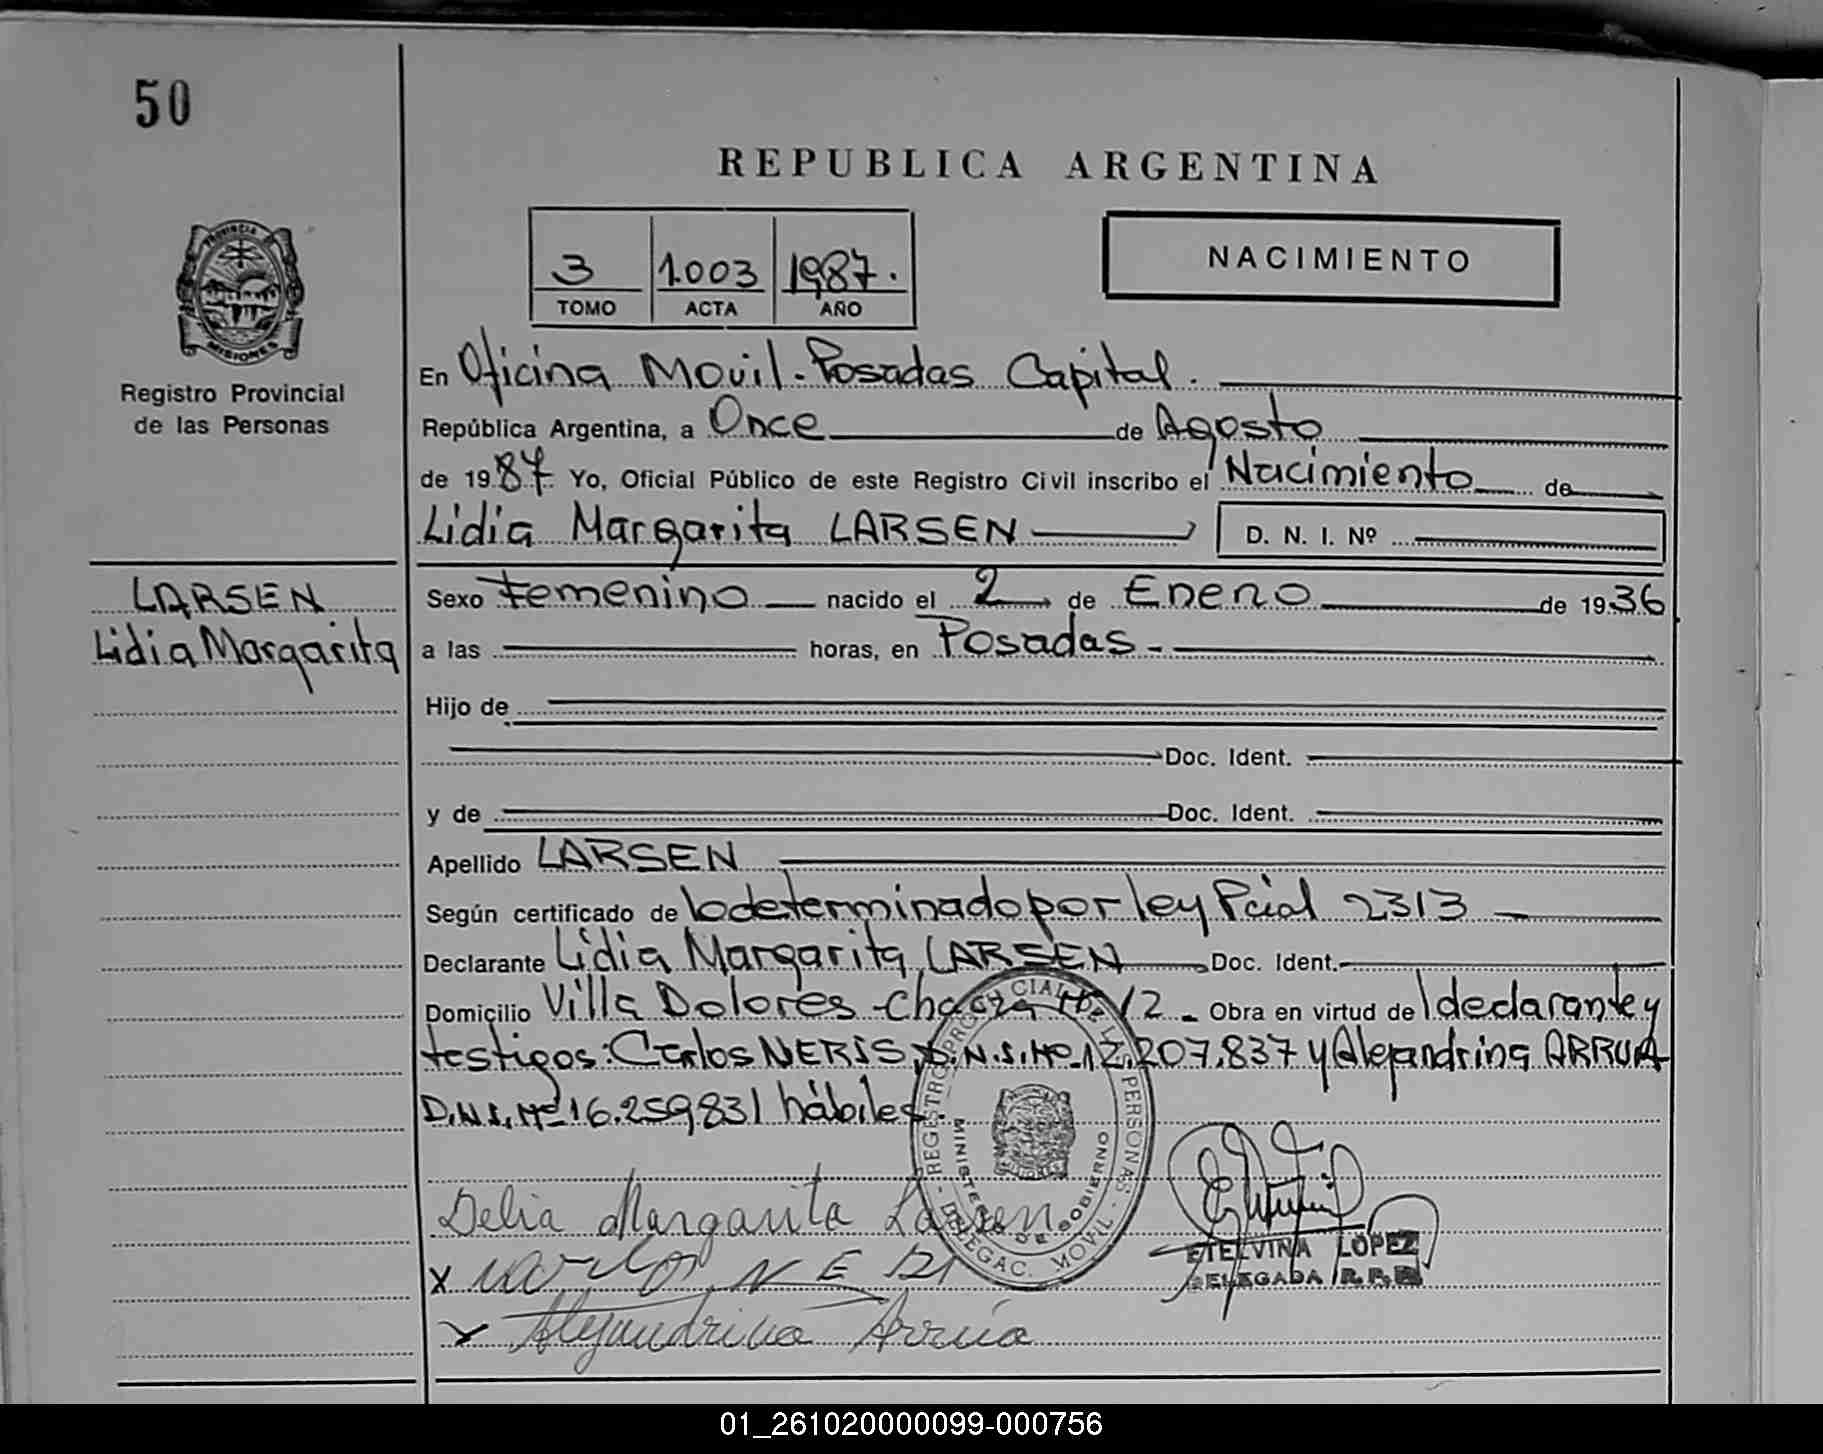 50
REPUBLICA ARGENTINA
PROVINCIA
MISIONES
3 1.003 1987.
TOMO ACTA AÑO
NACIMIENTO
Registro Provincial
de las Personas
En Oficina Movil - Posadas Capital.
República Argentina, a Once de Agosto
de 1987. Yo, Oficial Público de este Registro Civil inscribo el Nacimiento de
Lidia Margarita LARSEN D. N. I. Nº
LARSEN
Lidia Margarita
Sexo Femenino nacido el 2 de Enero de 1936
a las horas, en Posadas -
Hijo de
Doc. Ident.
y de Doc. Ident.
Apellido LARSEN
Según certificado de lo determinado por ley Pcial 2313
Declarante Lidia Margarita LARSEN Doc. Ident.
Domicilio Villa Dolores - Chacra Nº 12 - Obra en virtud de l declarante y
testigos: Carlos NERIS, D.N.I. Nº 12.207.837 y Alejandrina ARRUA
D.N.I. Nº 16.259831 hábiles.
REGISTRO PROVINCIAL DE LAS PERSONAS
MINISTERIO DE GOBIERNO
DELEGAC. MOVIL
Delia Margarita Larsen
X Carlos NERI
X Alejandrina Arrúa
ETELVINA LOPEZ
DELEGADA R. P. P.
01_261020000099-000756